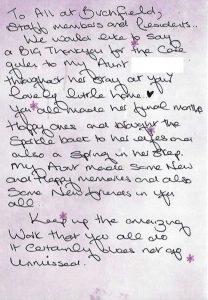 To All at Birchfield,
Staff members and Residents..
We would like to say
a BIG Thankyou for the Care
given to My Aunt
throughout her stay at your
lovely little home ♥
You all made her final months
Happy ones and brought the
Sparkle back to her eyes and
also a Spring in her Step.
My Aunt made Some New
and Happy memories and also
Some New friends in you
all.
Keep up the amazing
Work that you all do
it Certainly does not go
Unnissed.